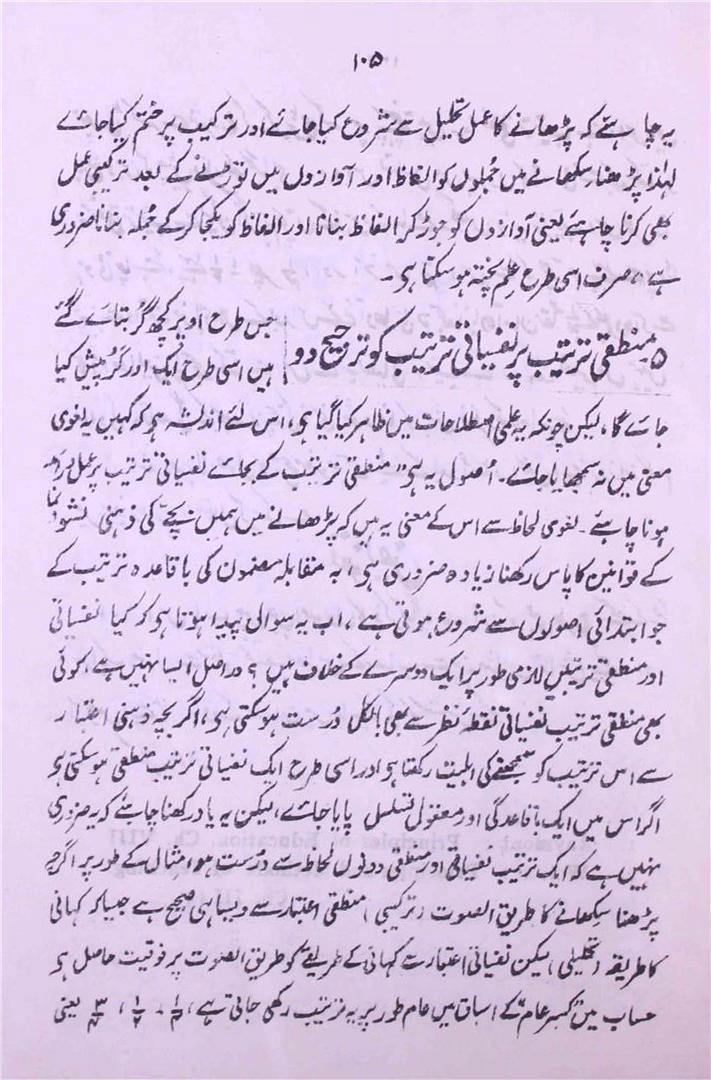 ۱۰۵
یہ چاہئے کہ پڑھانے کا عمل تحلیل سے شروع کیا جائے اور ترکیب پر ختم کیا جائے
لہٰذا پڑھنا سکھانے میں جُملوں کو الفاظ اور آوازوں میں توڑنے کے بعد ترکیبی عمل
بھی کرنا چاہئے یعنی آوازوں کو جوڑ کر الفاظ بنانا اور الفاظ کو یکجا کر کے جُملہ بنانا ضروری
ہے، صرف اسی طرح علم پختہ ہو سکتا ہو۔
۵ منطقی ترتیب پر نفسیاتی ترتیب کو ترجیح دو
جس طرح اوپر کچھ گُر بتائے گئے
ہیں اسی طرح ایک اور گُر پیش کیا
جائے گا، لیکن چونکہ یہ علمی اصطلاحات میں ظاہر کیا گیا ہو، اس لئے اندیشہ ہو کہ کہیں یہ لغوی
معنی میں نہ سمجھا یا جائے۔ اُصول یہ ہو "منطقی ترتیب کے بجائے نفسیاتی ترتیب پر عمل درآمد
ہونا چاہئے۔ لغوی لحاظ سے اس کے معنی یہ ہیں کہ پڑھانے میں ہمیں بچے کی ذہنی نشوونما
کے قوانین کا پاس رکھنا زیادہ ضروری ہی، بہ مقابلہ مضمون کی باقاعدہ ترتیب کے
جو ابتدائی اصولوں سے شروع ہوتی ہے، اب یہ سوال پیدا ہوتا ہو کہ کیا نفسیاتی
اور منطقی ترتیبیں لازمی طور پر ایک دوسرے کے خلاف ہیں؟ دراصل ایسا نہیں ہے، کوئی
بھی منطقی ترتیب نفسیاتی نقطۂ نظر سے بھی بالکل دُرست ہو سکتی ہو، اگر بچہ ذہنی اعتبار
سے اس ترتیب کو سمجھنے کی اہلیت رکھتا ہو اور اسی طرح ایک نفسیاتی ترتیب منطقی ہو سکتی ہو
اگر اس میں ایک باقاعدگی اور معقول تسلسل پایا جائے، لیکن یہ یاد رکھنا چاہئے کہ یہ ضروری
نہیں ہے کہ ایک ترتیب نفسیاتی اور منطقی دونوں لحاظ سے دُرست ہو، مثال کے طور پر اگرچہ
پڑھنا سکھانے کا طریق الصوت (ترکیبی) منطقی اعتبار سے ویسا ہی صحیح ہے جیسا کہ کہانی
کا طریقہ (تحلیلی) لیکن نفسیاتی اعتبار سے کہانی کے طریقے کو طریق الصوت پر فوقیت حاصل ہو
حساب میں کسرِ عام کے اسباق میں عام طور پر یہ ترتیب رکھی جاتی ہے، ۱/۴، ۱/۲، ۳/۴ یعنی